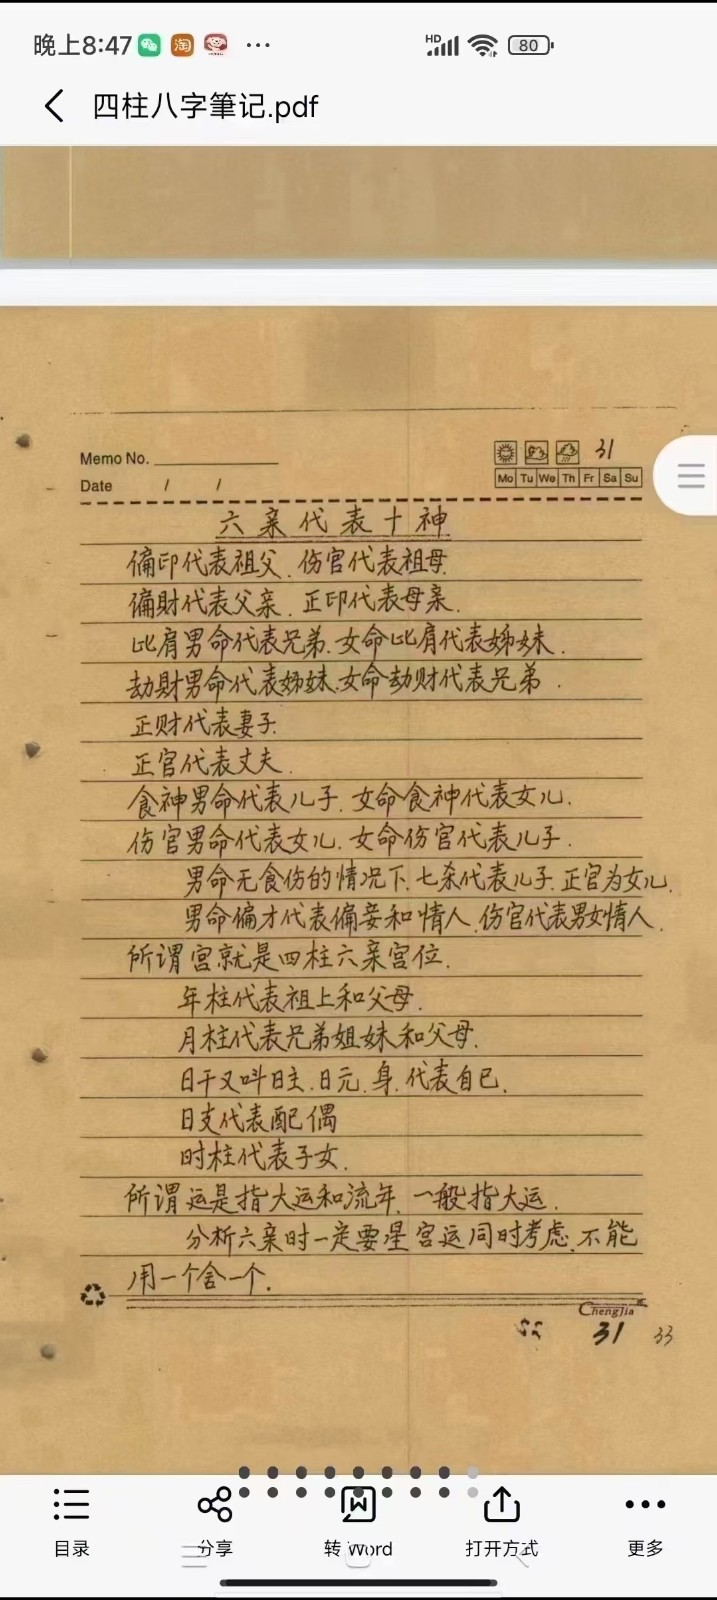 晚上8:47
HD
80
四柱八字筆记.pdf
31
Memo No.
Mo Tu We Th Fr Sa Su
Date / /
六亲代表十神
偏印代表祖父.伤官代表祖母
偏財代表父亲.正印代表母亲.
比肩男命代表兄弟.女命比肩代表姊妹.
劫財男命代表姊妹.女命劫财代表兄弟.
正财代表妻子.
正官代表丈夫.
食神男命代表儿子.女命食神代表女儿.
伤官男命代表女儿.女命伤官代表儿子.
男命无食伤的情况下.七杀代表儿子.正官为女儿.
男命偏才代表偏妾和情人.伤官代表男女情人.
所谓宫就是四柱六亲宫位.
年柱代表祖上和父母.
月柱代表兄弟姐妹和父母.
日干又叫日主.日元.身.代表自已.
日支代表配偶
时柱代表子女.
所谓运是指大运和流年.一般指大运.
分析六亲时一定要星宫运同时考虑.不能
用一个舍一个.
ChengJia
31
33
目录
分享
转 Word
打开方式
更多